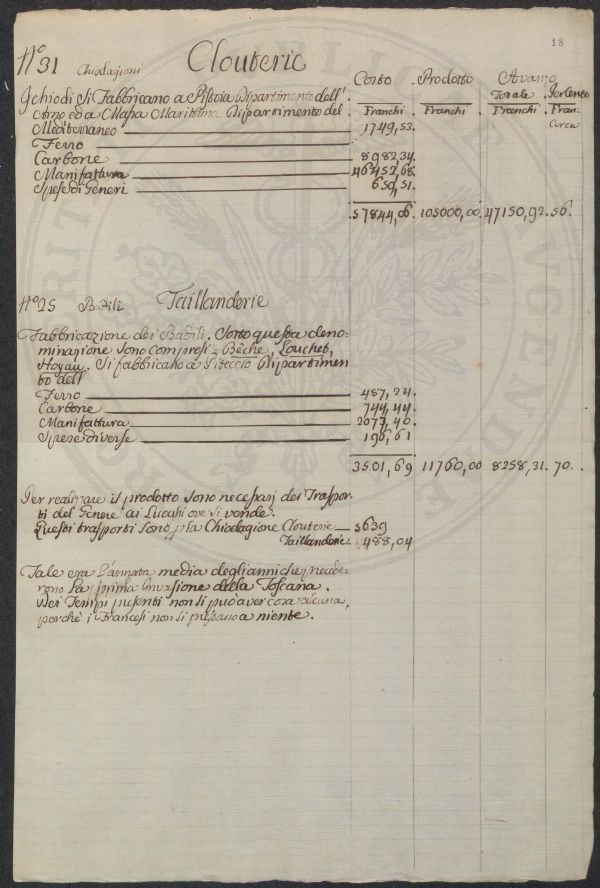 18
N.° 31 Chiodagioni Clouterie
Costo Prodotto Avanzo
Totale Perlento
Franchi Franchi Franchi Fran:
Circa
I chiodi si Fabbricano a Pistoia Dipartimento dell'
Arno ed a Massa Marittima Dipartimento del
Mediterraneo 1749,53.
Ferro
Carbone 8982,34.
Manifattura 46452,68.
Spese di Generi 659,51.
57844,06. 105000,00. 47150,92. 56.
N.° 25 Badili Taillanderie
Fabbricazione dei Badili. Sotto questa deno-
minazione sono compresi, Bêche, Louchet,
Hoyau. Si fabbricano a Piteccio Dipartimen
to dell'
Ferro 487,24.
Carbone 744,44.
Manifattura 2077,40.
Spese diverse 196,61
3501,69 11760,00 8258,31. 70..
Per realizzare il prodotto sono necessarj dei Traspor-
ti del Genere ai Luoghi ove si vende.
Questi trasporti sono p la Chiodagione Clouterie 5639
Taillanderie 488,04
Tale era l'annata media degli anni che precede-
rono la prima Invasione della Toscana.
Nei Tempi presenti non si può aver cosa alcuna,
perchè i Francesi non si prestano a niente.